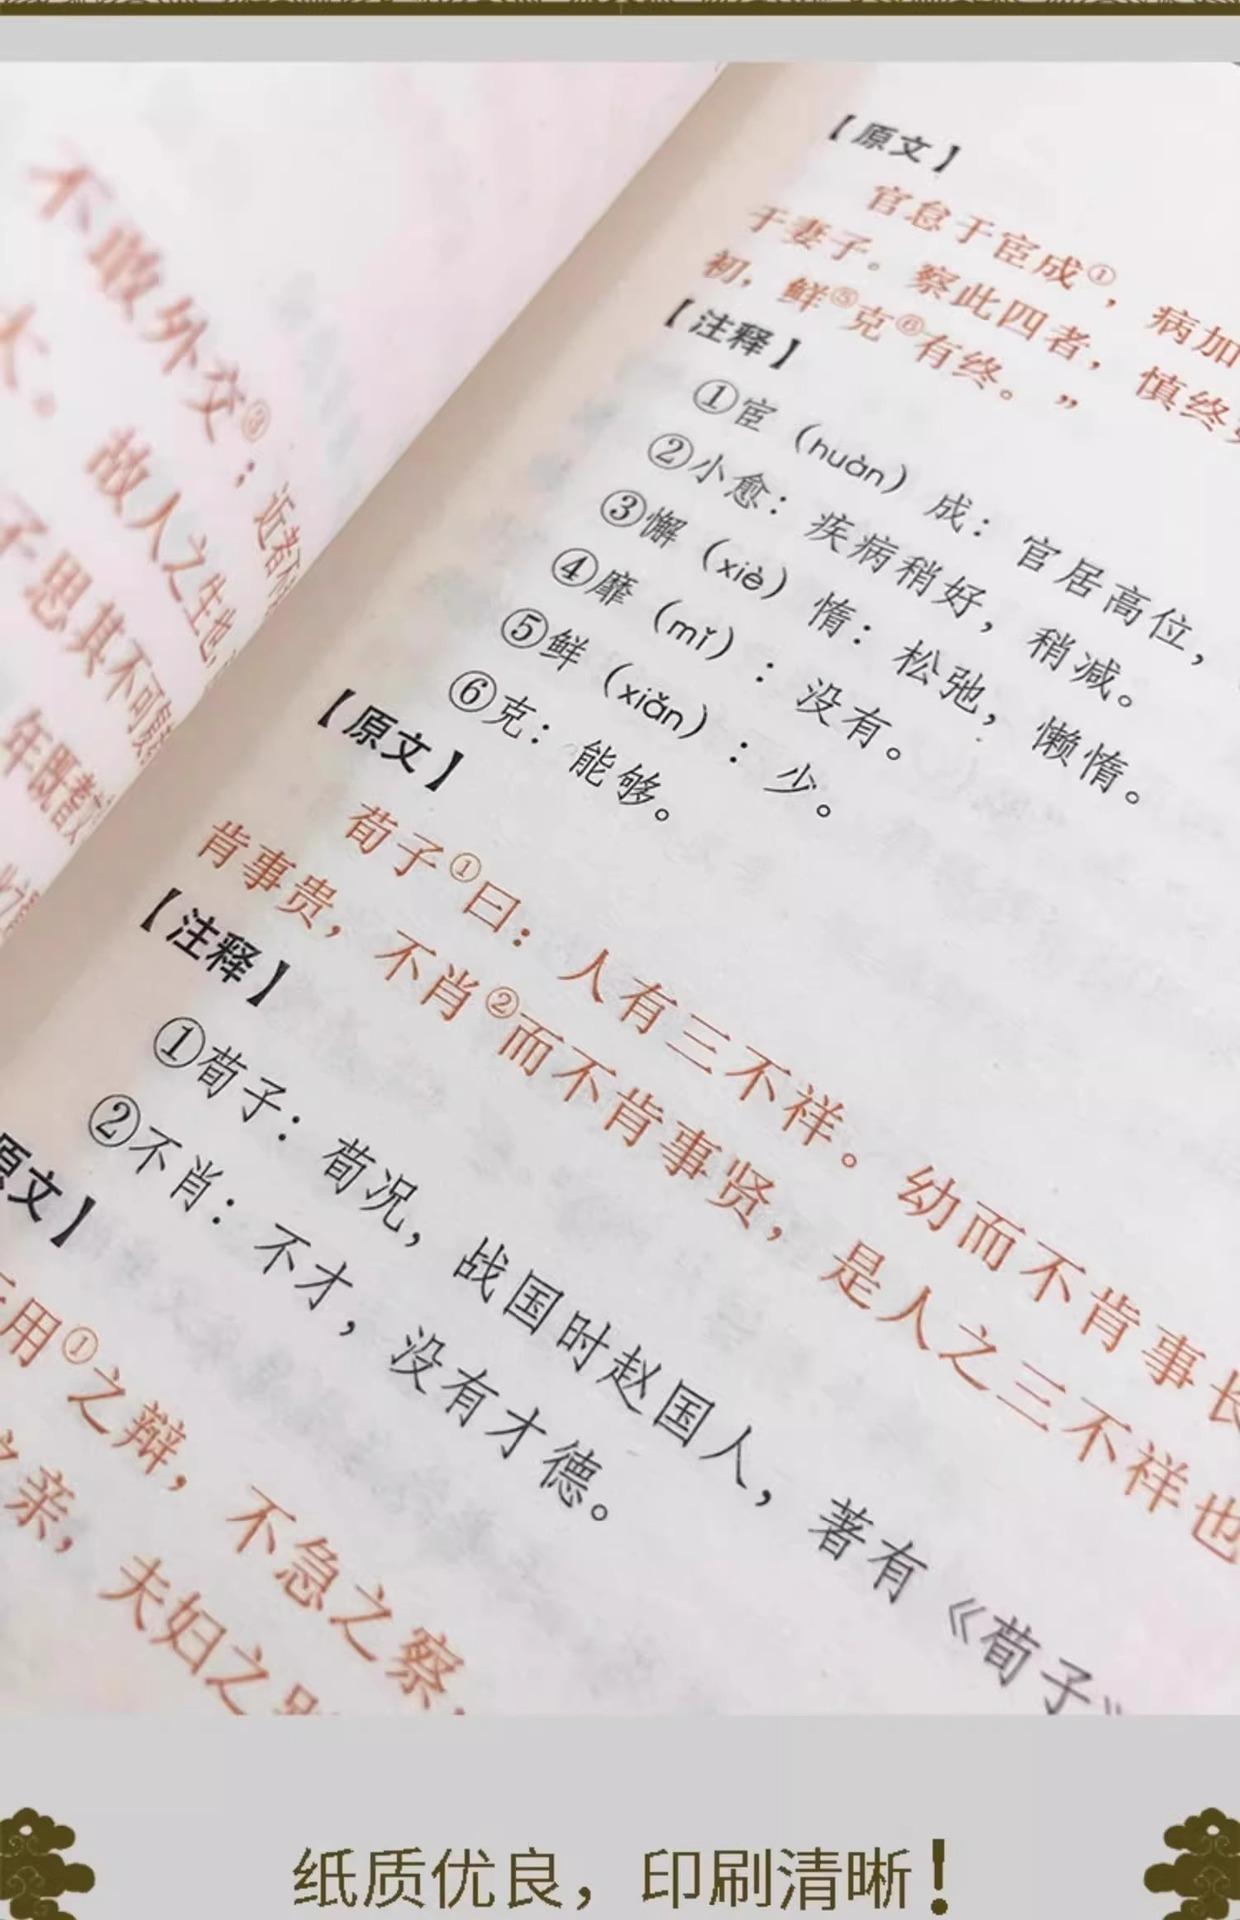 不敢外交③；近者不
大。故人之生也，
子思其不可
年既
【原文】
官怠于宦成①，病加
于妻子。察此四者，慎终
初，鲜⑤克⑥有终。”
【注释】
①宦（huàn）成：官居高位，
②小愈：疾病稍好，稍减。
③懈（xiè）惰：松弛，懒惰。
④靡（mǐ）：没有。
⑤鲜（xiǎn）：少。
⑥克：能够。
【原文】
荀子①曰：人有三不祥。幼而不肯事长
肯事贵，不肖②而不肯事贤，是人之三不祥也
【注释】
①荀子：荀况，战国时赵国人，著有《荀子》
②不肖：不才，没有才德。
原文】
用①之辩，不急之察，
之亲，夫妇之别
纸质优良，印刷清晰！